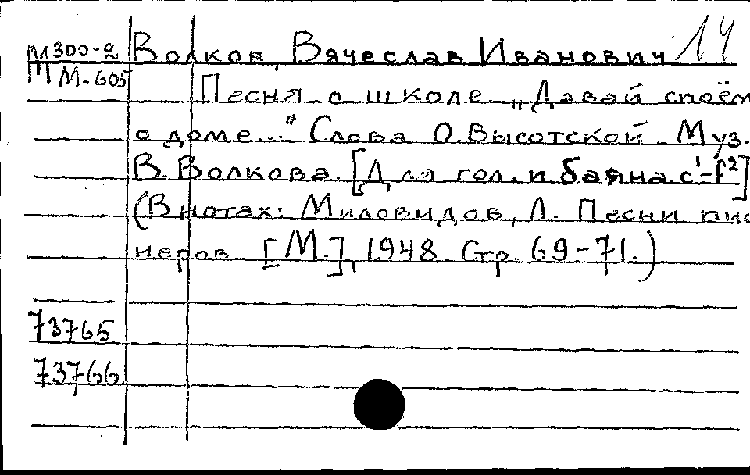 М300-2 Волков, Вячеслав Иванович 14
М М-605
Песня о школе „Давай споём
о доме..." Слова О. Высотской. Муз.
В. Волкова. [Для гол. и баяна c¹-f²]
(В нотах: Миловидов, Л. Песни пио-
неров [М.], 1948. Стр. 69-71.)
73765
73766